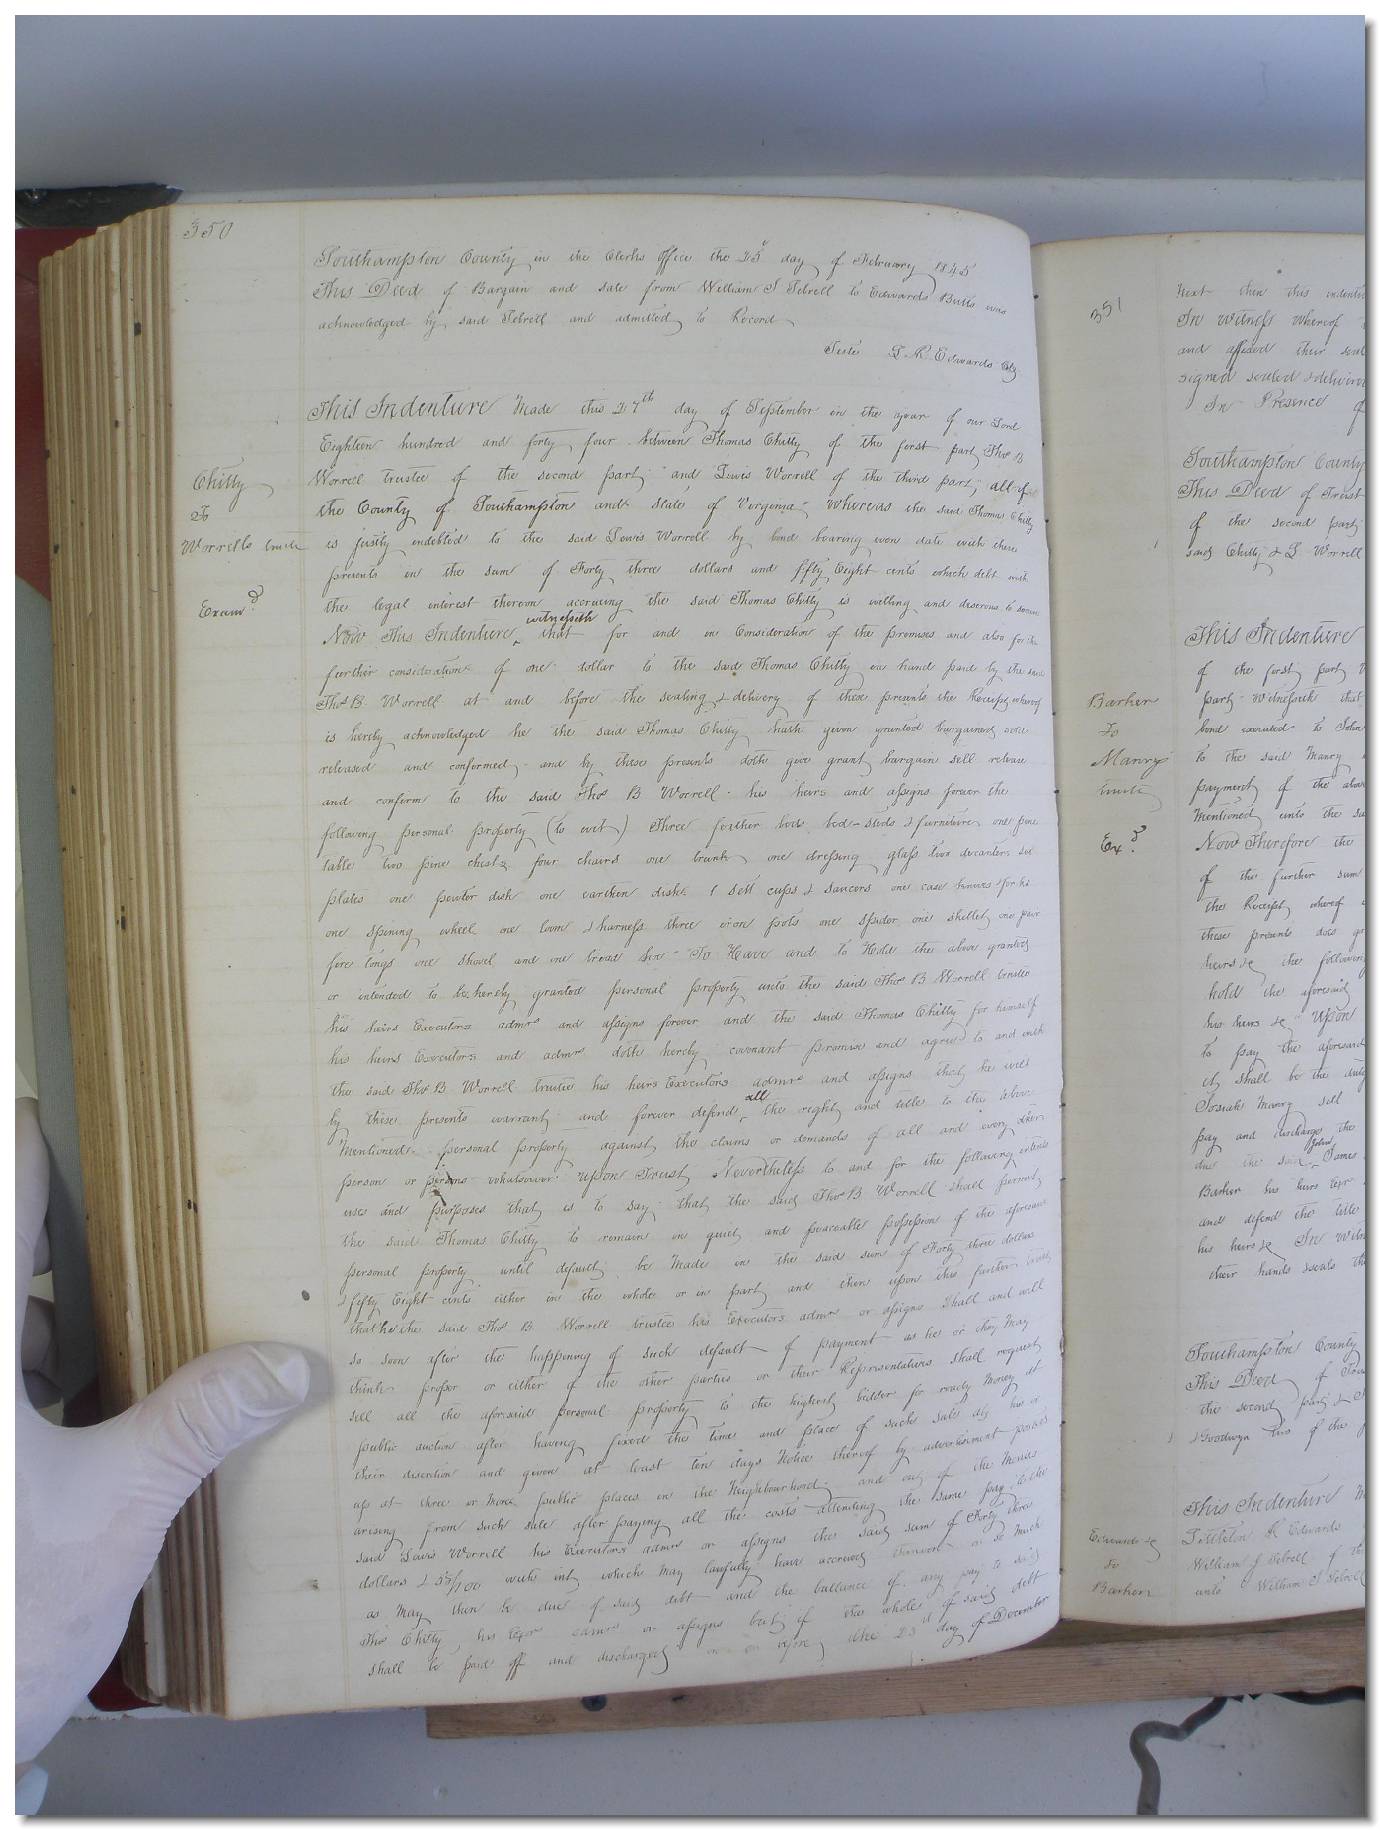 350
Southampton County in the Clerks Office the 25 day of February 1845
This Deed of Bargain and sale from William J Sebrell to Edwards Butts was
acknowledged by said Sebrell and admitted to Record
Teste L R Edwards Clk
This Indenture Made this 27th day of September in the year of our Lord
Eighteen hundred and forty four between Thomas Chitty of the first part Thos B
Chitty
To
Worrells trustee
Examd
Worrell trustee of the second part and Lewis Worrell of the third part, all of
the County of Southampton and state of Virginia Whereas the said Thomas Chitty
is justly indebted to the said Lewis Worrell by bond bearing even date with these
presents in the sum of Forty three dollars and fifty Eight cents which debt with
the legal interest thereon accruing the said Thomas Chitty is willing and desirous to secure
Now This Indenture witnesseth that for and in Consideration of the premises and also for the
further consideration of one dollar to the said Thomas Chitty in hand paid by the said
Thos B Worrell at and before the sealing & delivery of these presents the Receipt whereof
is hereby acknowledged he the said Thomas Chitty hath given granted bargained sold
released and confirmed and by these presents doth give grant bargain sell release
and confirm to the said Thos B Worrell his heirs and assigns forever the
following personal property (to wit) Three feather beds bed-steds & furniture one pine
table two pine chests four chairs one trunk one dressing glass two decanters six
plates one pewter dish one earthen dish 1 sett cups & saucers one case knives & forks
one spining wheel one loom & harness three iron pots one spider one skillet one pair
fire tongs one shovel and one bread To Have and to Hold the above granted
or intended to be hereby granted personal property unto the said Thos B Worrell trustee
his heirs Executors admrs and assigns forever and the said Thomas Chitty for himself
his heirs Executors and admrs doth hereby covenant promise and agree to and with
the said Thos B Worrell trustee his heirs Executors admrs and assigns that he will
by these presents warrant and forever defend all the right and title to the above
Mentioned personal property against the claims or demands of all and every other
person or persons whatsoever upon Trust Nevertheless to and for the following intents
uses and purposes that is to say that the said Thos B Worrell shall permit
the said Thomas Chitty to remain in quiet and peaceable possession of the aforesaid
personal property until default be Made in the said sum of Forty three dollars
& fifty Eight cents either in the whole or in part and then upon this further trust
that he the said Thos B Worrell trustee his Executors admrs or assigns shall and will
so soon after the happening of such default of payment as he or they May
think proper or either of the other parties or their Representatives shall request
sell all the aforesaid personal property to the highest bidder for ready Money at
public auction after having fixed the time and place of such sale at his or
their discretion and given at least ten days Notice thereof by advertisement posted
up at three or More public places in the Neighbourhood and out of the Monies
arising from such sale after paying all the costs attending the same pay to the
said Lewis Worrell his Executors admrs or assigns the said sum of Forty three
dollars & 58/100 with int which May lawfully have accrued thereon or so Much
as May then be due of said debt and the ballance if any pay to said
Thos Chitty, his Exrs admrs or assigns but if the whole of said debt
shall be paid off and discharged on or before the 25 day of December
351
Next then this indenture
In Witness Whereof
and affixed their seals
signed sealed & delivered
In Presence of
Southampton County
This Deed of Trust
of the second part
said Chitty & L Worrell
This Indenture
of the first part
Barker
To
Manry
trustee
Exd
part Witnesseth that
bond executed to John
to the said Manry
payment of the above
Mentioned unto the said
Now Therefore the
of the further sum
the Receipt whereof
these presents does
heirs &c the following
hold the aforesaid
his heirs &c Upon
to pay the aforesaid
it shall be the duty
Josiah Manry sell
pay and discharge the
due the said John James
Barker his heirs Exr
and defend the title
his heirs &c In Witness
their hands & seals the
Southampton County
This Deed of
the second part &
& Goodwyn of the
This Indenture
Edwards &c
To
Barker
Littleton R Edwards
William J Sebrell of the
unto William J Sebrell